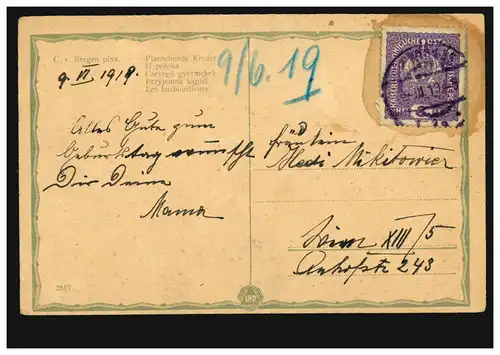 C. v. Bergen pinx.
Planschende Kinder
U potoka
Csevegő gyermekek
Przyjemna kąpiel
Les barbouilleurs
9. VI. 1919.
9/6. 19
Alles Gute zum
Geburtstag wünscht
Dir Deine
Mama
Fräulein
Hedi Nikitowicz
Wien XIII/5
243
2617